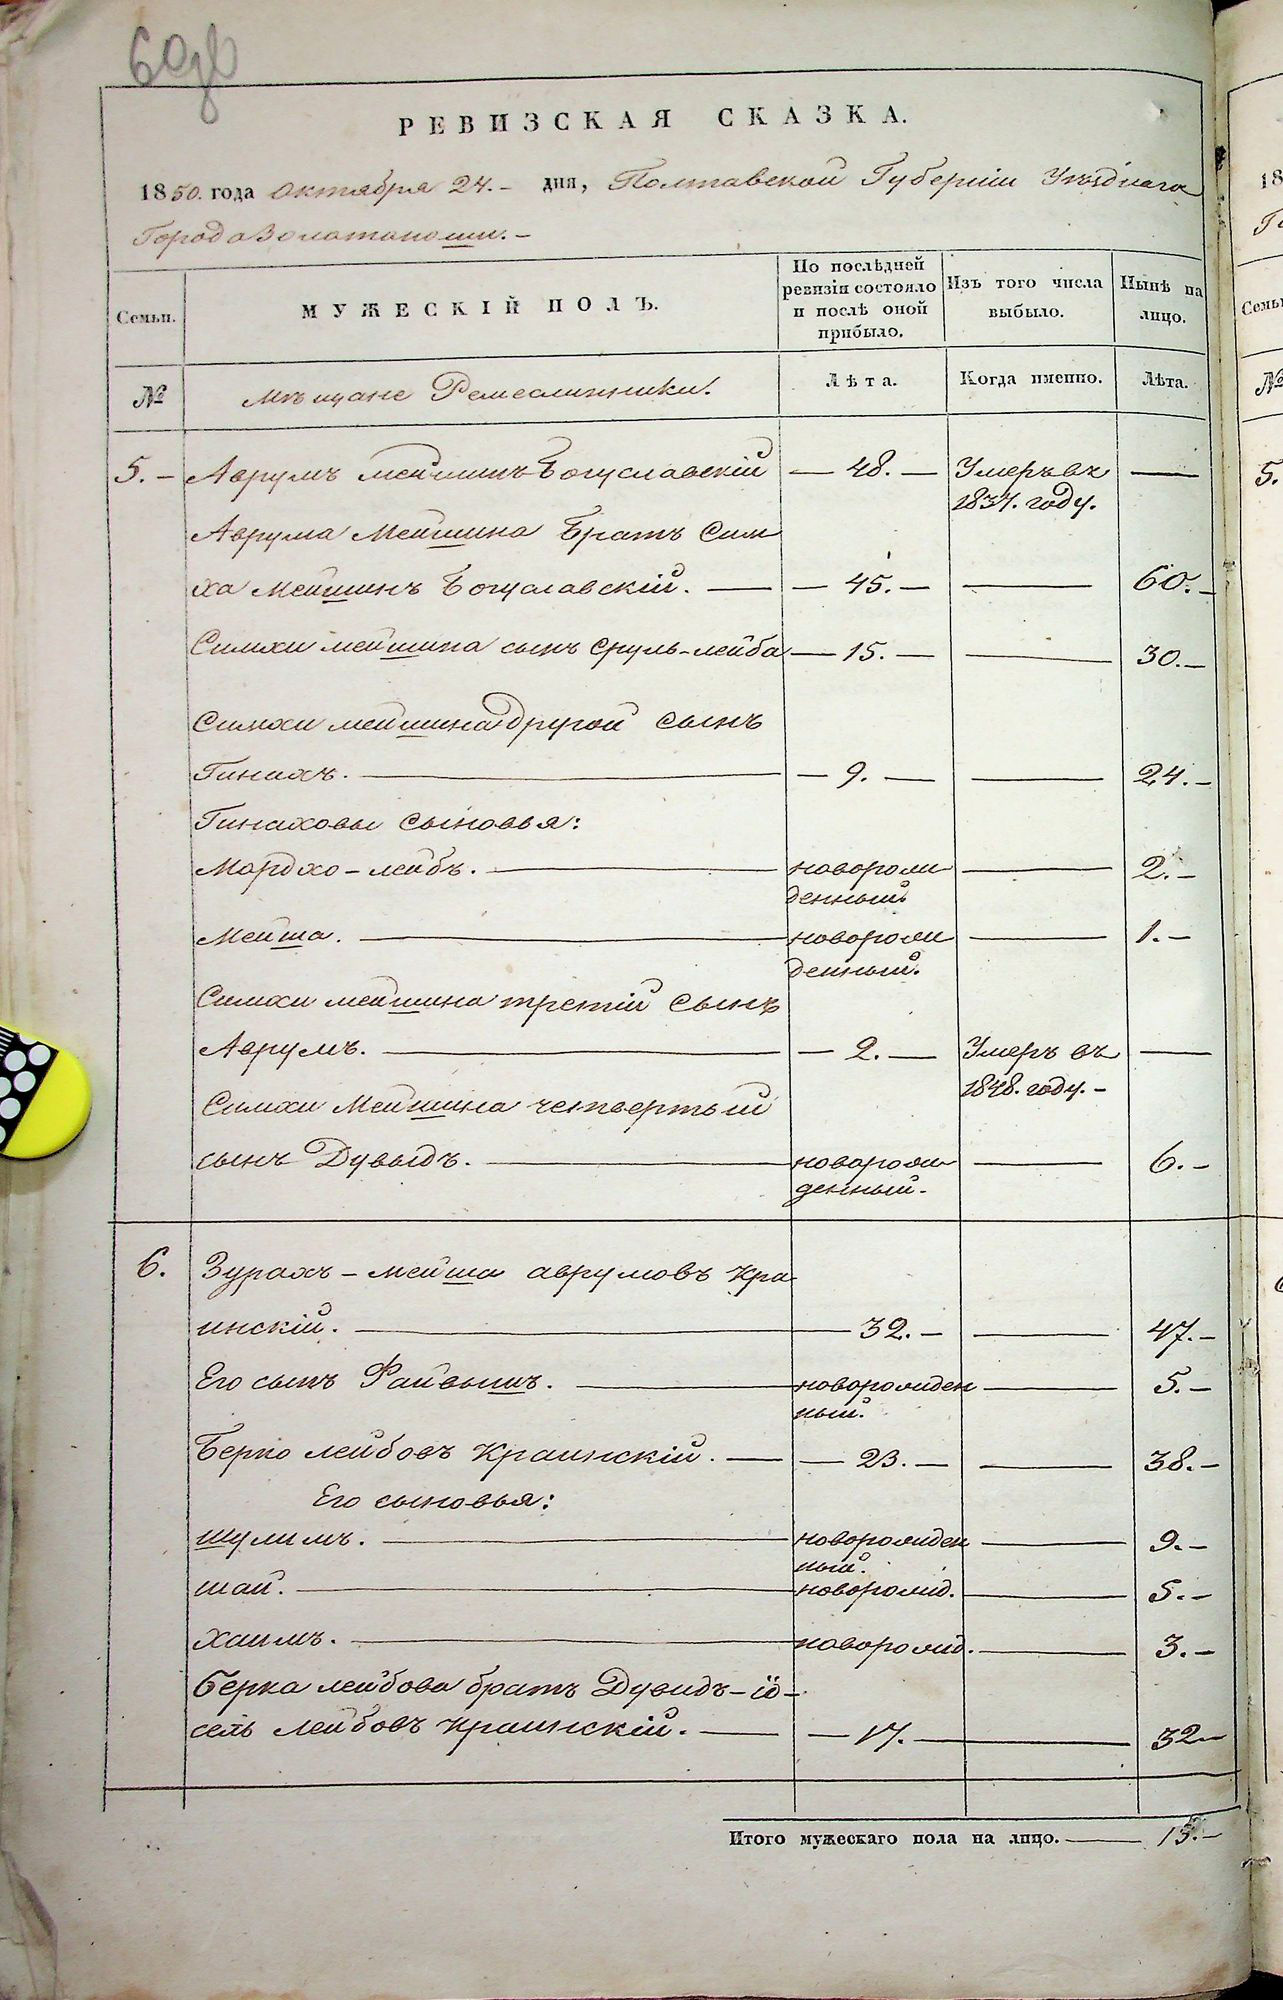 60об
РЕВИЗСКАЯ СКАЗКА.
1850. года Октября 24.- дня, Полтавской Губерніи Уѣзднаго
Города Золотоноши.-
Семьи.
МУЖЕСКІЙ ПОЛЪ.
По послѣдней ревизіи состояло и послѣ оной прибыло.
Изъ того числа выбыло.
Нынѣ на лицо.
№
мѣщане Ремесленники.
Лѣта.
Когда именно.
Лѣта.
5.- Аврумъ мейшинъ Богуславскій — 48. — Умеръ въ —
1837. году.
Аврума Мейшина братъ Сим
ха Мейшинъ Богуславскій. — 45. — — 60.-
Симхи мейшина сынъ Сруль-лейба — 15. — — 30.-
Симхи мейшина другой сынъ
Гинахъ. — 9. — — 24.-
Гинаховы сыновья:
Мордхо-лейбъ. — новорож — 2.-
денный.
Мейша. — новорож — 1.-
денный.
Симхи мейшина третій сынъ
Аврумъ. — 2. — Умеръ въ —
1848. году.-
Симхи Мейшина четвертый
сынъ Дувыдъ. — новорож — 6.-
денный.
6. Зурахъ-мейша аврумовъ Кра
инскій. — 32.- — 47.-
Его сынъ Файвышъ. — новорожден — 5.-
ный.
Берко лейбовъ Краинскій. — 23. — — 38.-
Его сыновья:
шулимъ. — новорожден — 9.-
ный.
шаи. — новорожд. — 5.-
хаимъ. — новорожд. — 3.-
Берка лейбова братъ Дувидъ-іо-
сель Лейбовъ Краинскій. — 17. — 32-
Итого мужескаго пола на лицо. — 13.-
18
5.
№